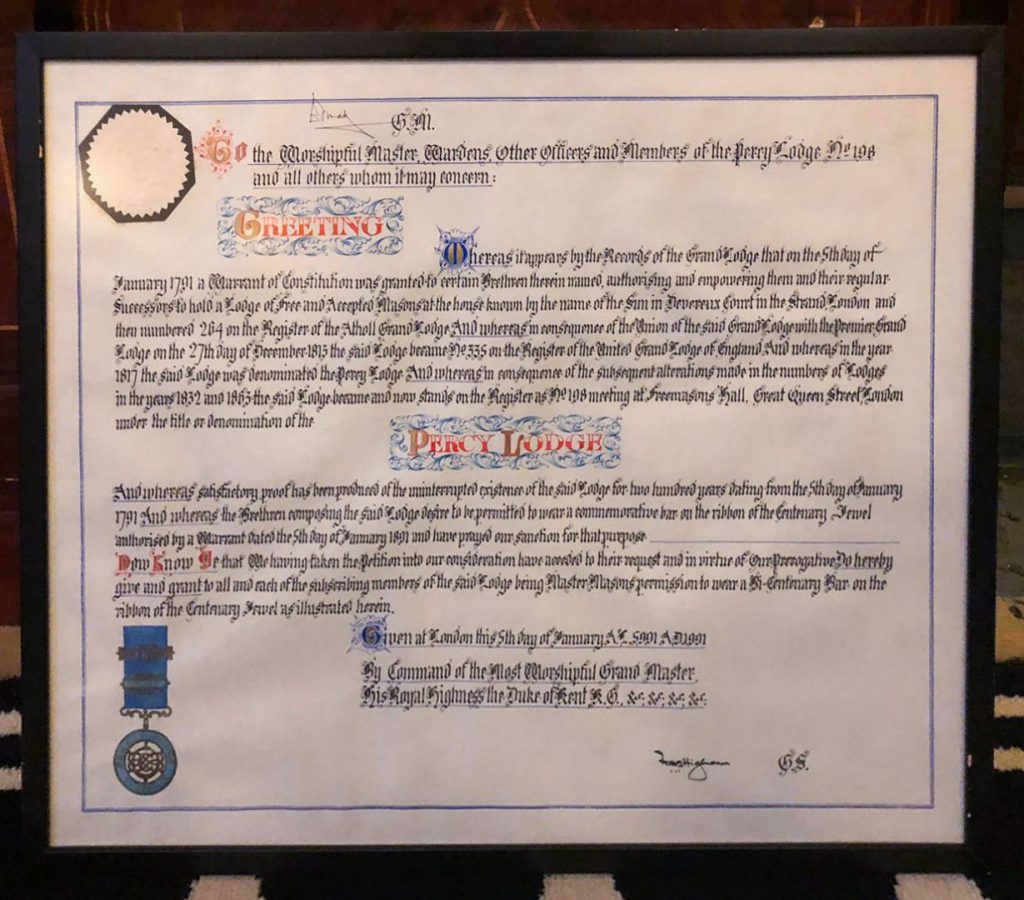 G.M.
To the Worshipful Master, Wardens, Other Officers and Members of the Percy Lodge No 198
and all others whom it may concern:
GREETING
Whereas it appears by the Records of the Grand Lodge that on the 5th day of
January 1791 a Warrant of Constitution was granted to certain Brethren therein named, authorising and empowering them and their regular
Successors to hold a Lodge of Free and Accepted Masons at the house known by the name of the Sun in Devereux Court in the Strand London and
then numbered 264 on the Register of the Atholl Grand Lodge And whereas in consequence of the Union of the said Grand Lodge with the Premier Grand
Lodge on the 27th day of December 1813 the said Lodge became No 335 on the Register of the United Grand Lodge of England And whereas in the year
1817 the said Lodge was denominated the Percy Lodge And whereas in consequence of the subsequent alterations made in the numbers of Lodges
in the years 1832 and 1863 the said Lodge became and now stands on the Register as No 198 meeting at Freemasons Hall, Great Queen Street, London
under the title or denomination of the
PERCY LODGE
And whereas satisfactory proof has been produced of the uninterrupted existence of the said Lodge for two hundred years dating from the 5th day of January
1791 And whereas the Brethren composing the said Lodge desire to be permitted to wear a commemorative bar on the ribbon of the Centenary Jewel
authorised by a Warrant dated the 5th day of January 1891 and have prayed our sanction for that purpose
Now Know Ye that We having taken the Petition into our consideration have acceded to their request and in virtue of Our Prerogative Do hereby
give and grant to all and each of the subscribing members of the said Lodge being Master Masons permission to wear a Bi-Centenary Bar on the
ribbon of the Centenary Jewel as illustrated herein.
Given at London this 5th day of January A.L. 5991 A.D. 1991
By Command of the Most Worshipful Grand Master,
His Royal Highness the Duke of Kent K.G., &c, &c, &c.
G.S.